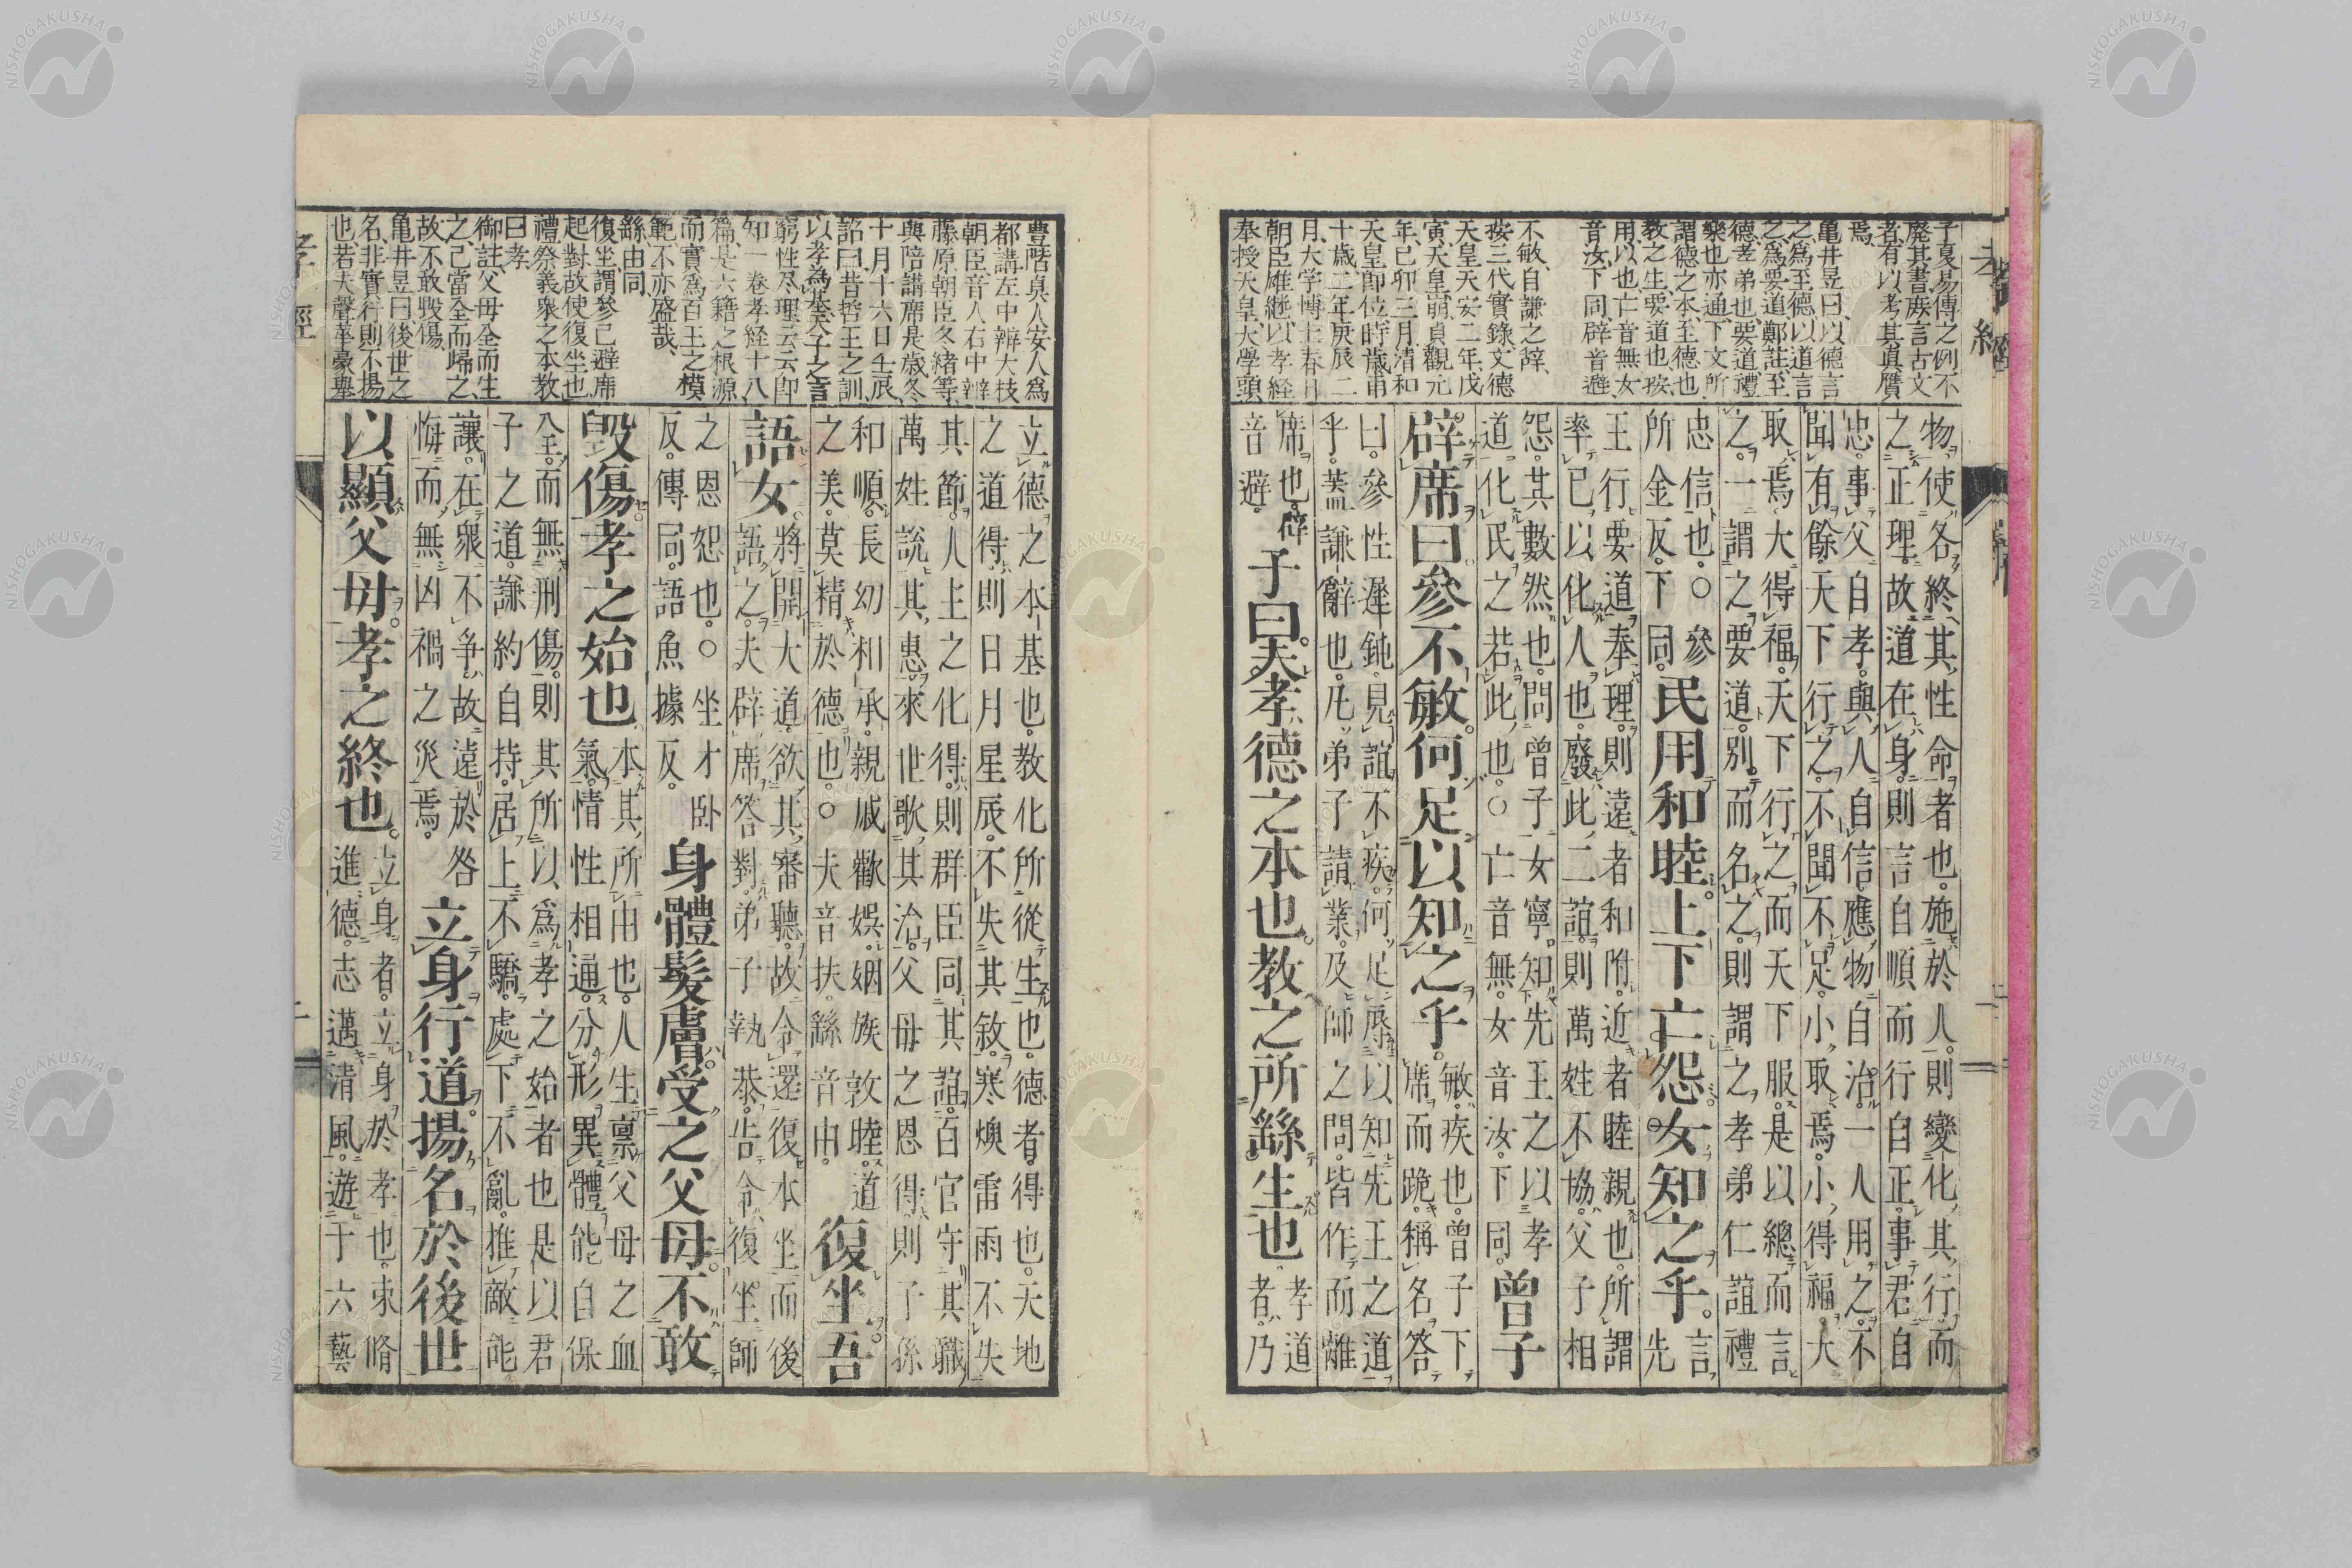 子夏易傳之例不
廢其書蔟言古文
者有以考其真贋
焉、
亀井昱曰、以德言
之、爲至德、以道言
之、爲要道、鄭註、至
德、孝弟也、要道、禮
樂也、亦通、下文所
謂德之本、至德也、
教之生、要道也、按、
用、以也、亡音無、女
音汝、下同、辟音避、
不敏、自謙之辞、
按三代實錄、文德
天皇天安二年、戊
寅、天皇崩、貞觀元
年、己卯三月、清和
天皇卽位、時歳甫
十歳、二年庚辰二
月、大学博士春日
朝臣雄継、以孝経
奉授天皇、大學頭
孝經
物、使各終其性命者也。施於人。則變化其行而
之正理。故道在身。則言自順而行自正。事君自
忠。事父自孝。與人自信。應物自治。一人用之。不
聞有餘。天下行之。不聞不足。小取焉。小得福。大
取焉、大得福。天下行之而天下服。是以總而言
之。一謂之要道。別而名之。則謂之孝弟仁誼禮
忠信也。○參
所金反。下同。
民用和睦。上下亡怨。女知之乎。
言先
王行要道奉理。則遠者和附。近者睦親也。所謂
率已以化人也。廢此二誼。則萬姓不協。父子相
怨。其數然也。問曾子女寧知先王之以孝
道化民之若此也。○亡音無。女音汝。下同。
曾子
辟席曰。參不敏。何足以知之乎。
敏。疾也。曾子下
席而跪。稱名答
曰。參性遲鈍、見誼不疾。何足辱以知先王之道
乎。葢謙辭也。凡弟子請業。及師之問。皆作而離
席也。辟
音避。
子曰。夫孝德之本也。教之所繇生也
孝道
者。乃
豊階真人安人爲
都講、左中辨大枝
朝臣音人、右中辨
藤原朝臣冬緖等、
與陪講席、是歳冬
十月十六日壬辰、
詔曰、昔哲王之訓、
以孝爲基、夫子之言
窮性尽理云云、卽
知一卷孝経十八
篇、是六籍之根源、
而實爲百王之模
範、不亦盛哉、
繇、由同、
復坐、謂參已避席
起對、故使復坐也、
禮祭義、衆之本教
曰孝、
御註、父母全而生
之、己當全而歸之、
故不敢毀傷、
亀井昱曰、後世之
名、非實行則不揚
也、若夫聲華豪舉
立德之本基也。教化所從生也。德者。得也。天地
之道得。則日月星辰。不失其敘。寒燠雷雨不失
其節。人主之化得。則群臣同其誼。百官守其職
萬姓說其惠。來世歌其治。父母之恩得。則子孫
和順。長幼相承。親戚歡娛。姻族敦睦。道
之美。莫精於德也。○夫音扶。繇音由。
復坐。吾
語女。
將開大道。欲其審聽。故令還復本坐而後
語之。夫辟席答對。弟子執恭。告令復坐。師
之恩恕也。○坐才卧
反。傳同。語魚據反。
身體髮膚受之父母。不敢
毀傷孝之始也
本其所由也。人生稟父母之血
氣。情性相通。分形異體能自保
八王。而無刑傷。則其所以爲孝之始者也是以君
子之道。謙約自持。居上不驕。處下不亂。推敵能
讓。在衆不爭。故遠於咎
悔而無凶禍之災焉。
立身行道。揚名於後世
以顯父母。孝之終也。
立身者。立身於孝也。束脩
進德。志邁清風。遊于六藝